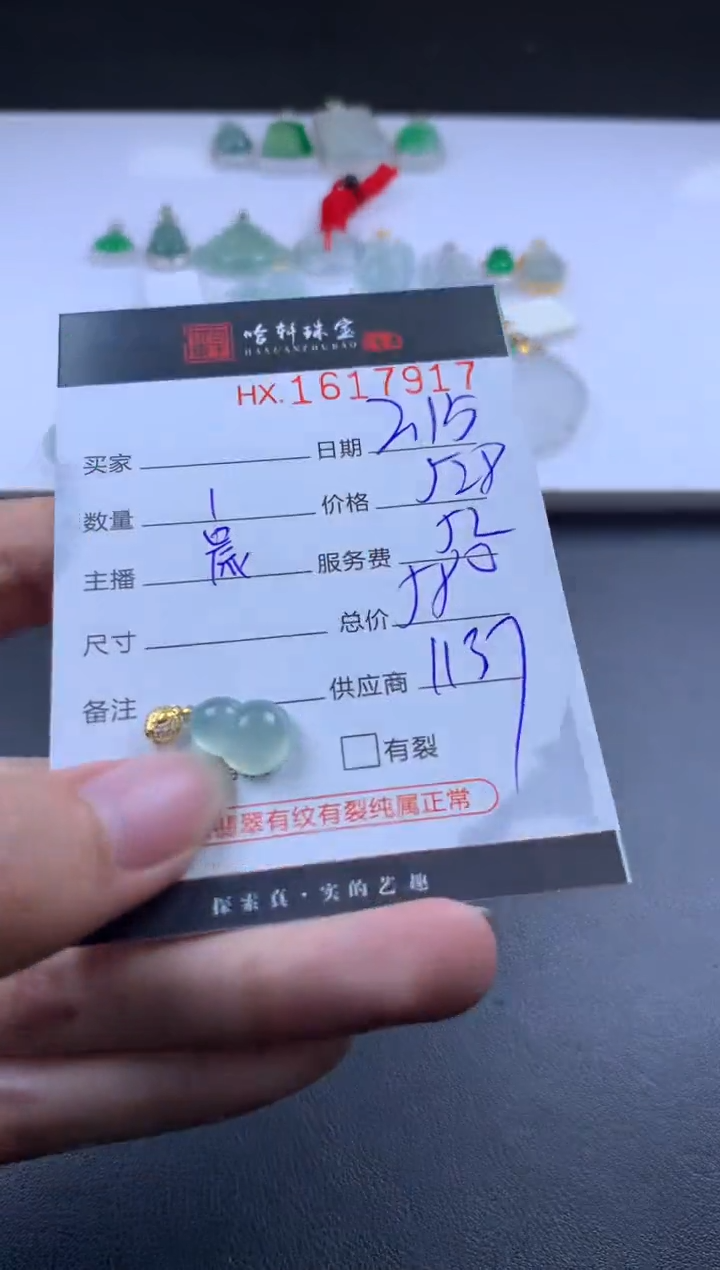 哈轩珠宝
HAXUANZHUBAO
HX.1617917
买家 日期 2.15
数量 1 价格 528
主播 服务费 52
尺寸 总价 580
备注 供应商 1137
有裂
翡翠有纹有裂纯属正常
探索真·实的艺趣